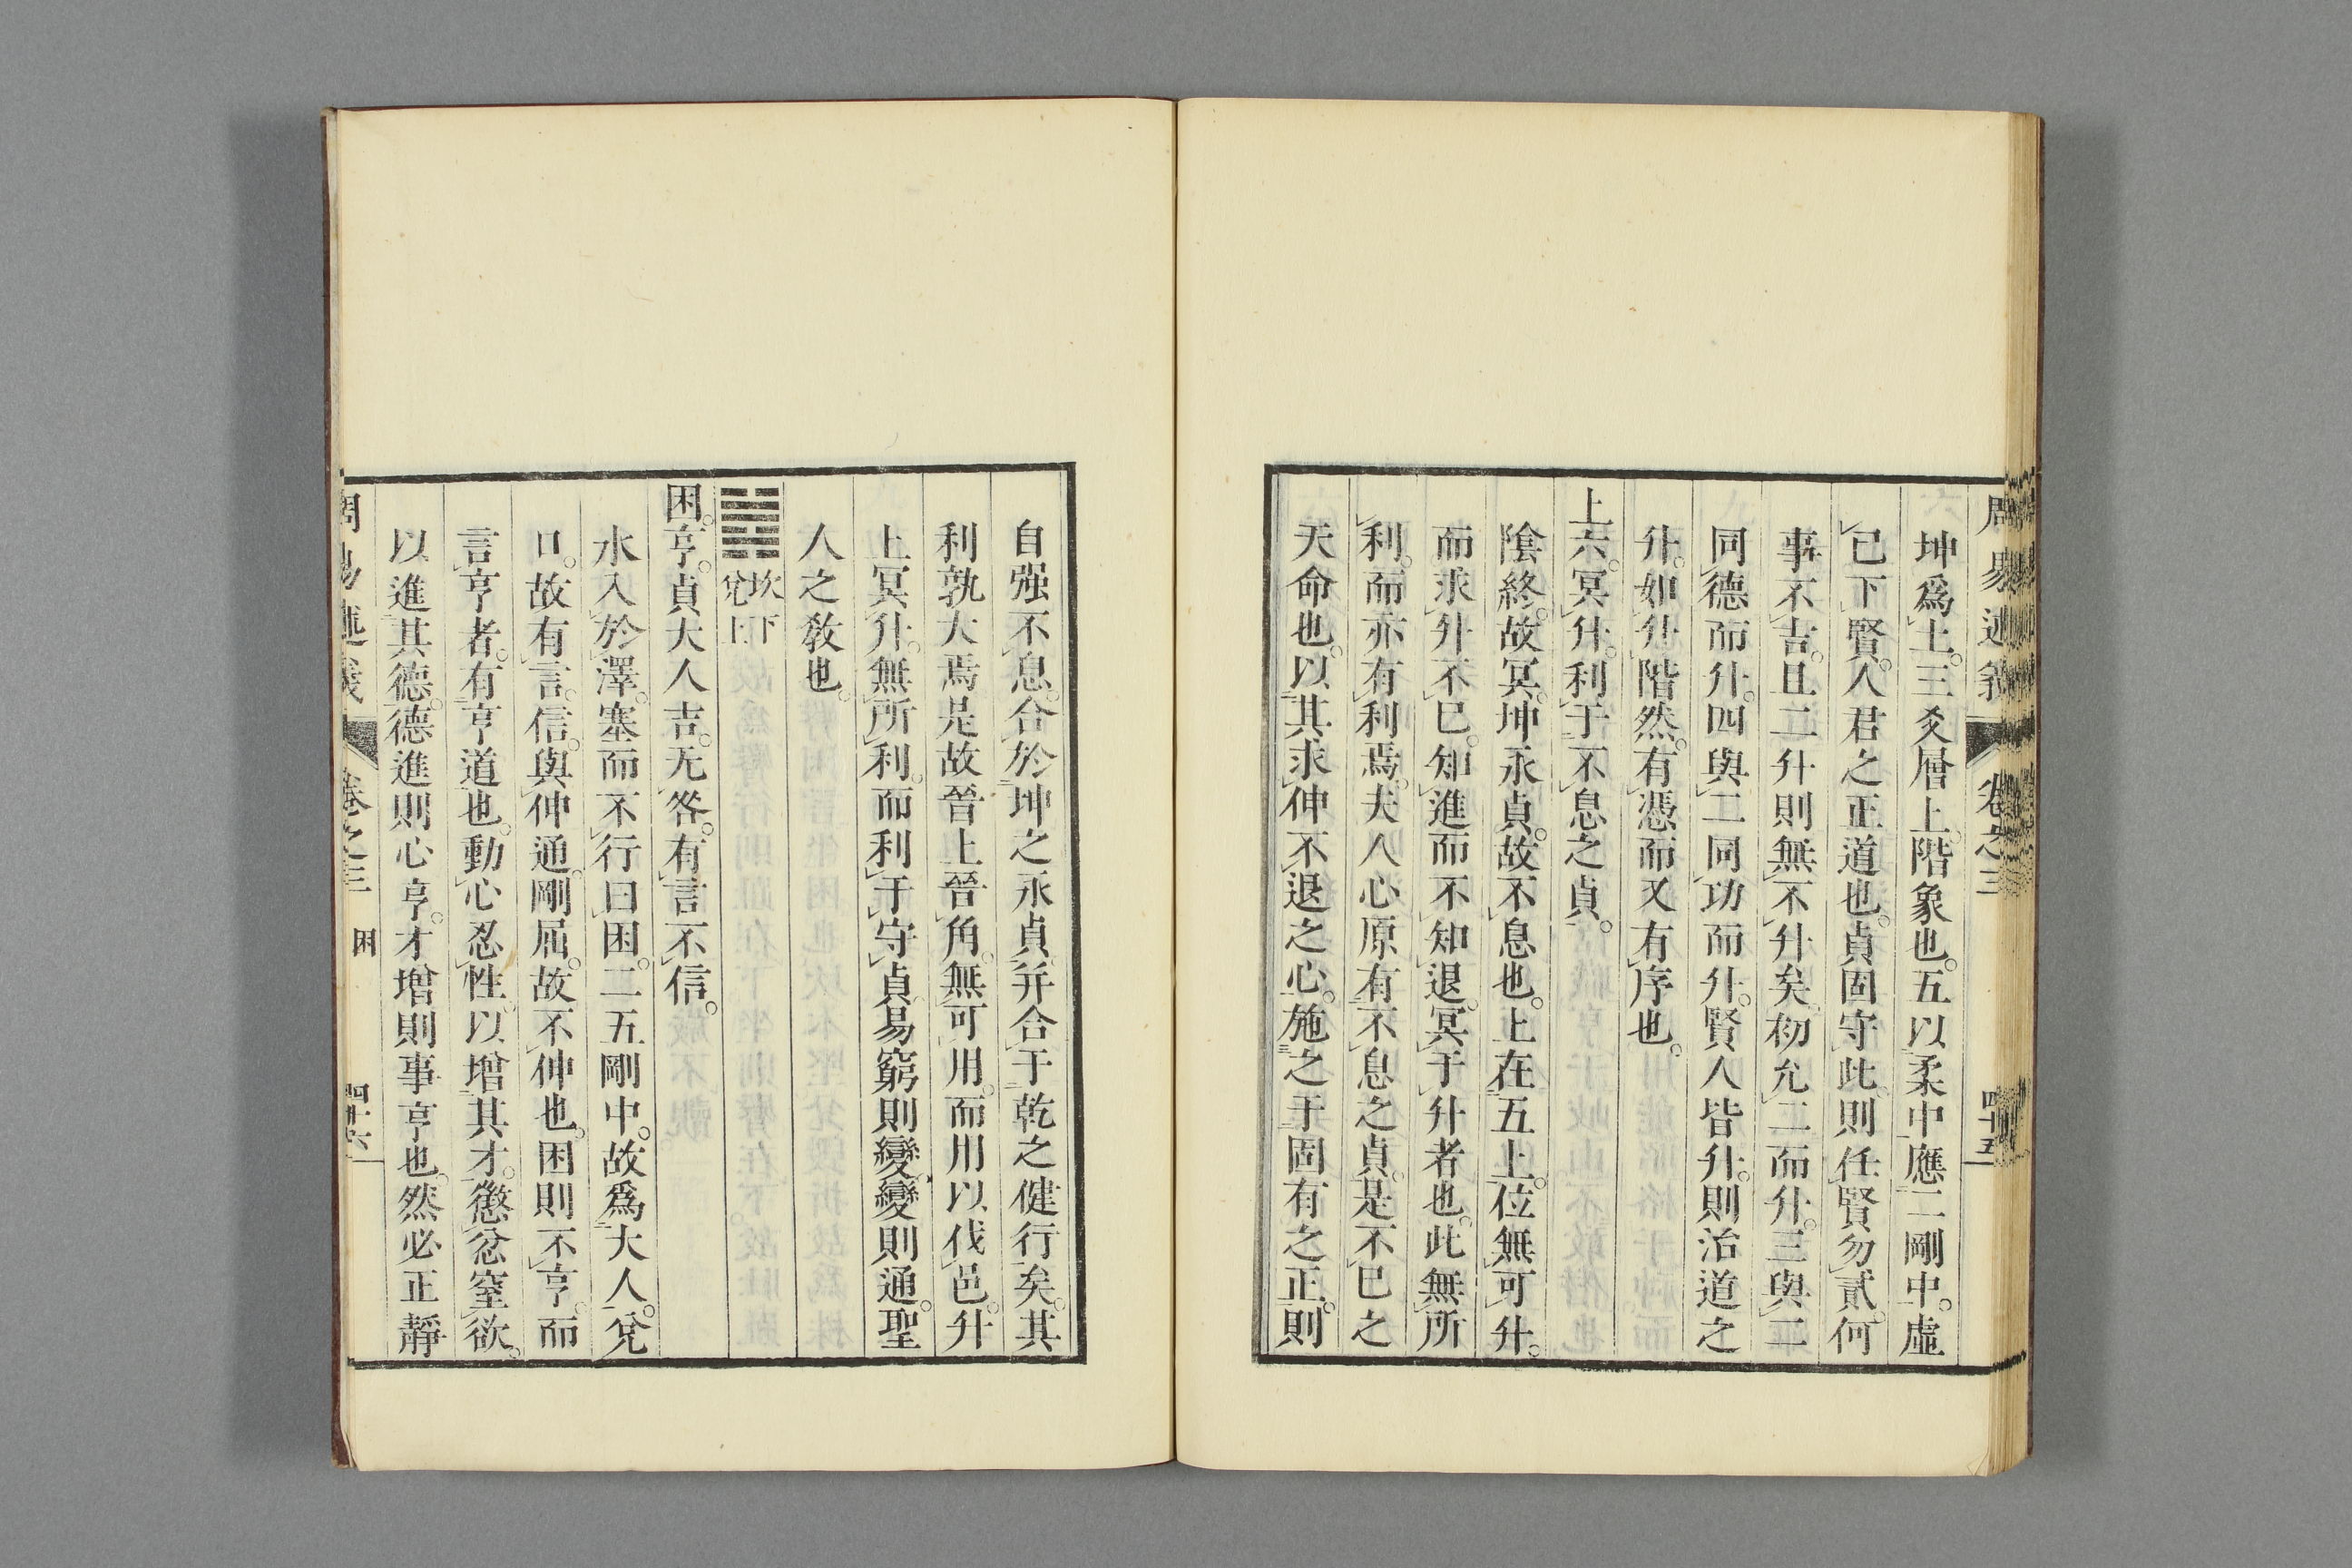 周易述義 卷之三 四十五
坤爲土。三爻層上。階象也。五以柔中應二剛中。虛
已下賢。人君之正道也。貞固守此。則任賢勿貳。何
事不吉。且二升則無不升矣。初允二而升。三與二
同德而升。四與二同功而升。賢人皆升。則治道之
升。如升階然。有憑而又有序也。
上六。冥升。利于不息之貞。
陰終。故冥。坤永貞。故不息也。上在五上。位無可升。
而求升不已。知進而不知退。冥于升者也。此無所
利。而亦有利焉。夫人心原有不息之貞。是不已之
天命也。以其求伸不退之心。施之于固有之正。則
自强不息。合於坤之永貞。并合于乾之健行矣。其
利孰大焉。是故晉上晉角。無可用。而用以伐邑。升
上冥升。無所利。而利于守貞。易窮則變。變則通。聖
人之敎也。
䷮ 坎下兌上
困。亨。貞大人吉。无咎。有言不信。
水入於澤。塞而不行曰困。二五剛中。故爲大人。兌
口。故有言。信。與伸通。剛屈。故不伸也。困則不亨。而
言亨者。有亨道也。動心忍性。以增其才。懲忿窒欲。
以進其德。德進則心亨。才增則事亨也。然必正靜
周易述義 卷之三 困 四十六